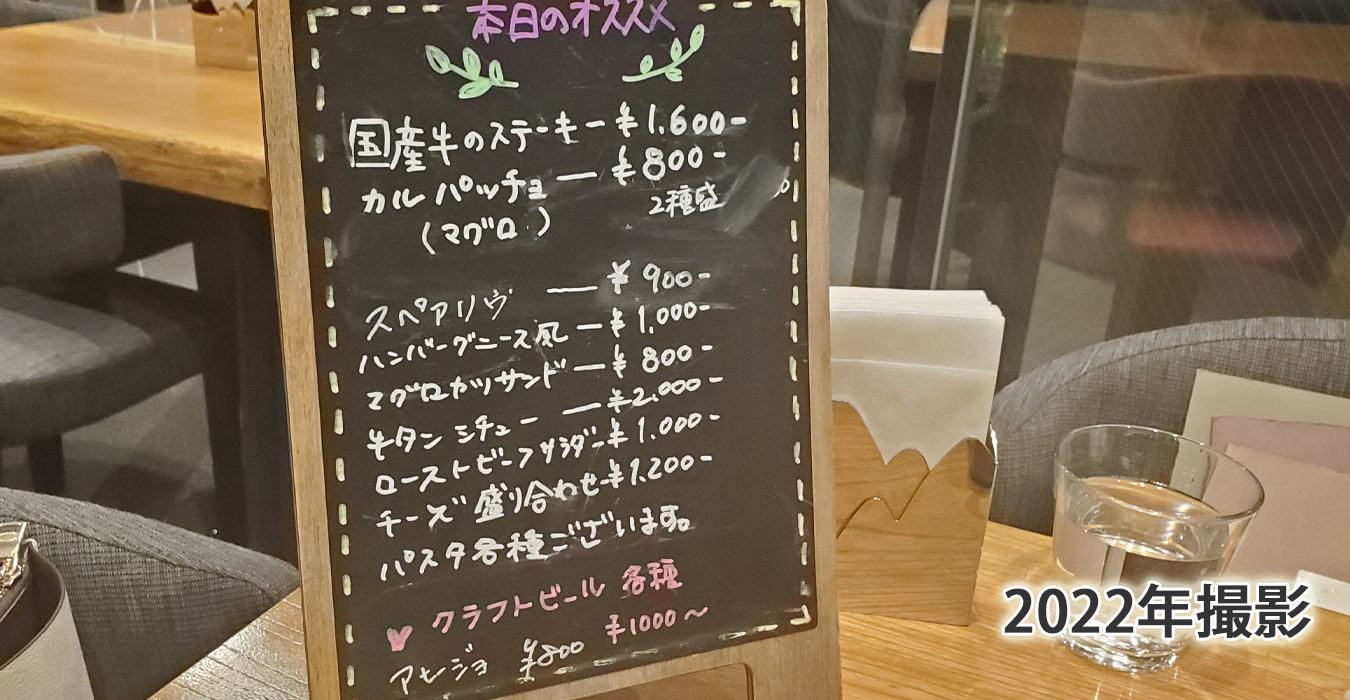 本日のオススメ
国産牛のステーキー ¥1.600-
カルパッチョ — ¥800-
(マグロ) 2種盛
スペアリヴ — ¥900-
ハンバーグニース風 — ¥1.000-
マグロカツサンド — ¥800-
牛タンシチュー — ¥2.000-
ローストビーフサラダ- ¥1.000-
チーズ盛り合わせ- ¥1.200-
パスタ各種ございます。
クラフトビール 各種
¥1000～
アヒージョ ¥800
2022年撮影